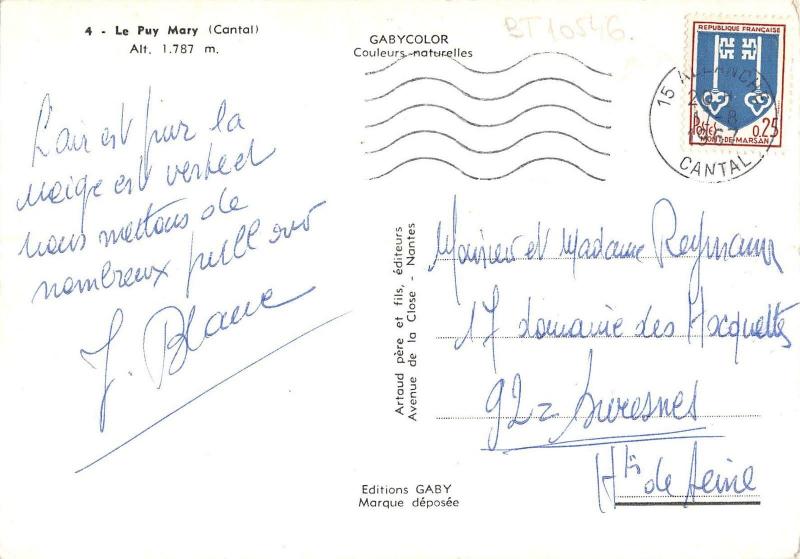 4 - Le Puy Mary (Cantal)
Alt. 1.787 m.
GABYCOLOR
Couleurs naturelles
BT10546.
REPUBLIQUE FRANÇAISE
Postes 0,25
MONT-DE-MARSAN
15 ALLANCHE
-8
1967
CANTAL
L'air est pur la
neige est verte et
nous mettons de
nombreux pull over
J. Blanc
Artaud père et fils, éditeurs
Avenue de la Close - Nantes
Monsieur et Madame Reymann
17 domaine des Hocquettes
92 = Suresnes
Hts de Seine
Editions GABY
Marque déposée